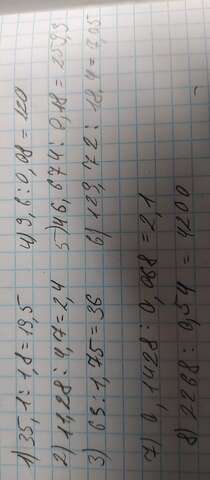 1) 35,1:1,8=19,5
2) 11,28:4,7=2,4
3) 63:1,75=36
4) 9,6:0,08=120
5) 46,674:0,18=259,3
6) 129,72:18,4=7,05
7) 0,1428:0,068=2,1
8) 2268:0,54=4200